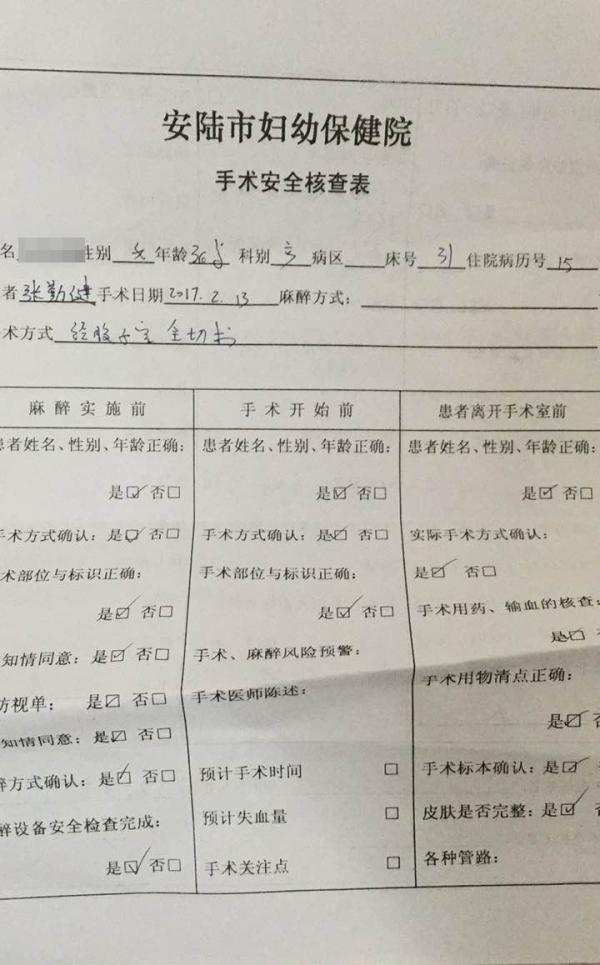 安陆市妇幼保健院
手术安全核查表
名 性别 女 年龄 36岁 科别 产 病区 床号 31 住院病历号 15
者 张勤健 手术日期 2017.2.13 麻醉方式:
术方式 经腹子宫全切术
麻醉实施前 手术开始前 患者离开手术室前
患者姓名、性别、年龄正确: 患者姓名、性别、年龄正确: 患者姓名、性别、年龄正确:
是☑ 否□ 是☑ 否□ 是☑ 否□
手术方式确认: 是☑ 否□ 手术方式确认: 是☑ 否□ 实际手术方式确认:
术部位与标识正确: 手术部位与标识正确: 是☑ 否□
是☑ 否□ 是☑ 否□ 手术用药、输血的核查:
知情同意: 是☑ 否□ 手术、麻醉风险预警: 是☑ 否□
访视单: 是☑ 否□ 手术医师陈述: 手术用物清点正确:
知情同意: 是☑ 否□ 是☑ 否□
醉方式确认: 是☑ 否□ 预计手术时间 □ 手术标本确认: 是☑ 否
醉设备安全检查完成: 预计失血量 □ 皮肤是否完整: 是☑ 否
是☑ 否□ 手术关注点 □ 各种管路: